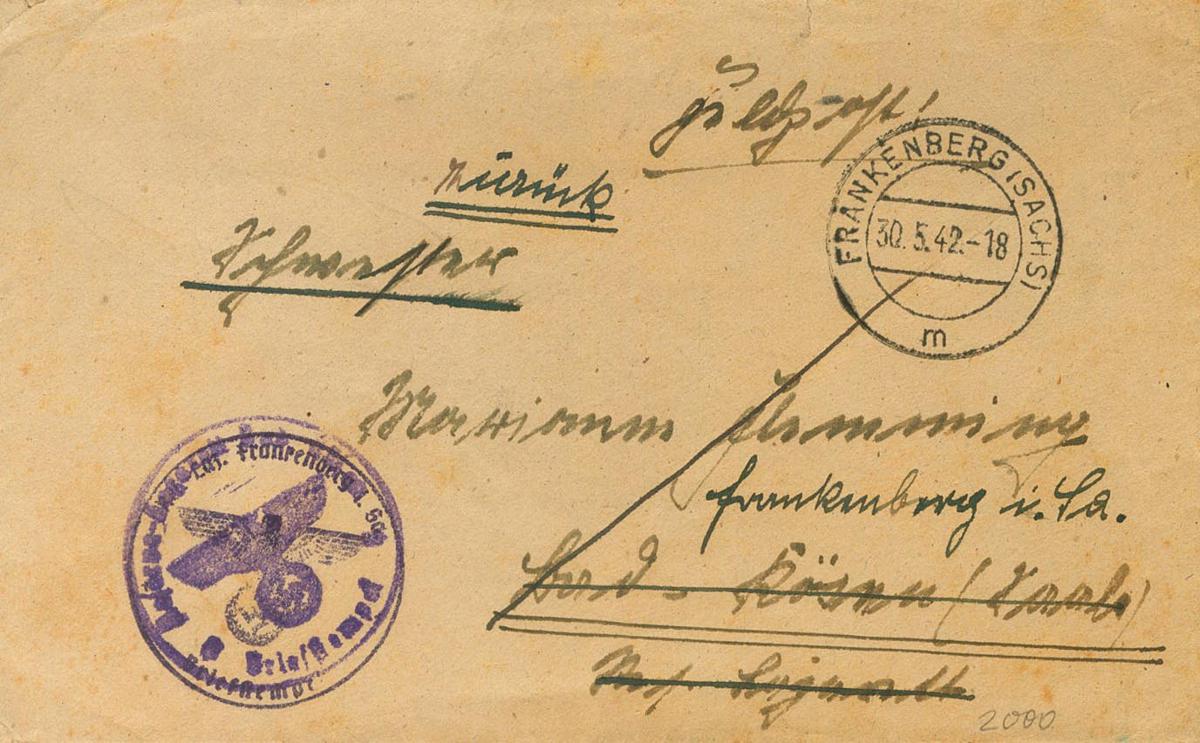 Feldpost!
zurück
Schwester
FRANKENBERG (SACHS)
30.5.42.-18
m
Mariann Flemming
Frankenberg i. Sa.
Bad-Kösen (Saale)
Laz. Frankenberg i. Sa.
Briefstempel
Briefstempel
2000